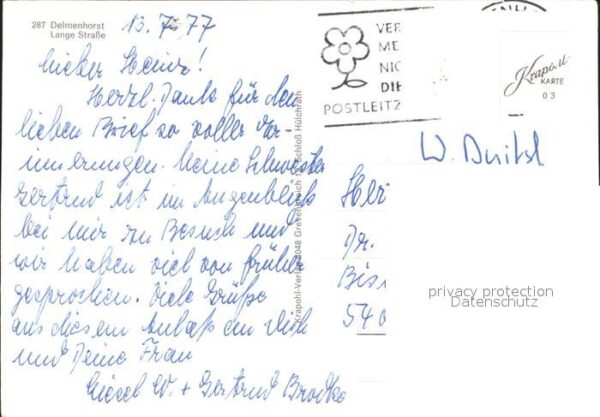 287 Delmenhorst
Lange Straße
13.7.77
Lieber Heinz!
Herzl. Dank für den
lieben Brief so voller Er-
innerungen. Meine Schwester
Gertrud ist im Augenblick
bei mir zu Besuch und
wir haben viel von früher
gesprochen. Viele Grüße
aus diesem Anlaß an Dich
und Deine Frau
W. + Gertrud
Krapohl-Verlag 4048 Grevenbroich Schloß Hülchrath
VER
ME
NIC
DIE
POSTLEITZ
Krapohl
KARTE
03
W.
Her
Dr.
Bis
540
privacy protection
Datenschutz